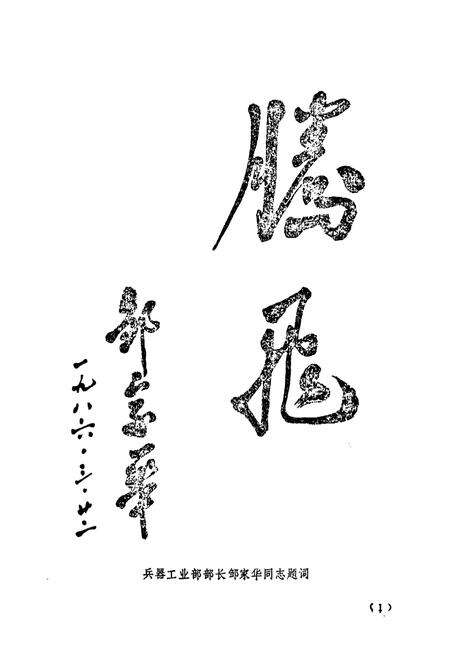 腾飞
邹家华
一九八六·三·廿二
兵器工业部部长邹家华同志题词
(1)